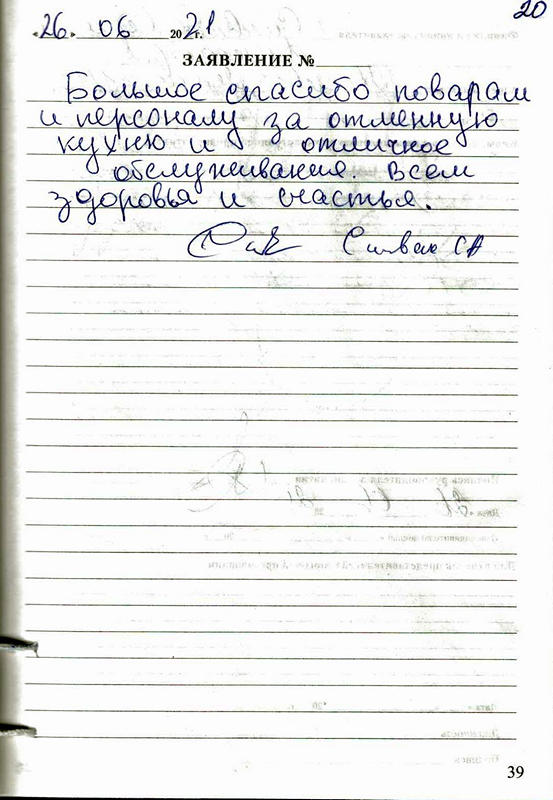 20
«26» 06 2021 г.
ЗАЯВЛЕНИЕ №
Большое спасибо поварам
и персоналу за отменную
кухню и отличное
обслуживание. Всем
здоровья и счастья.
Сивак СА
39